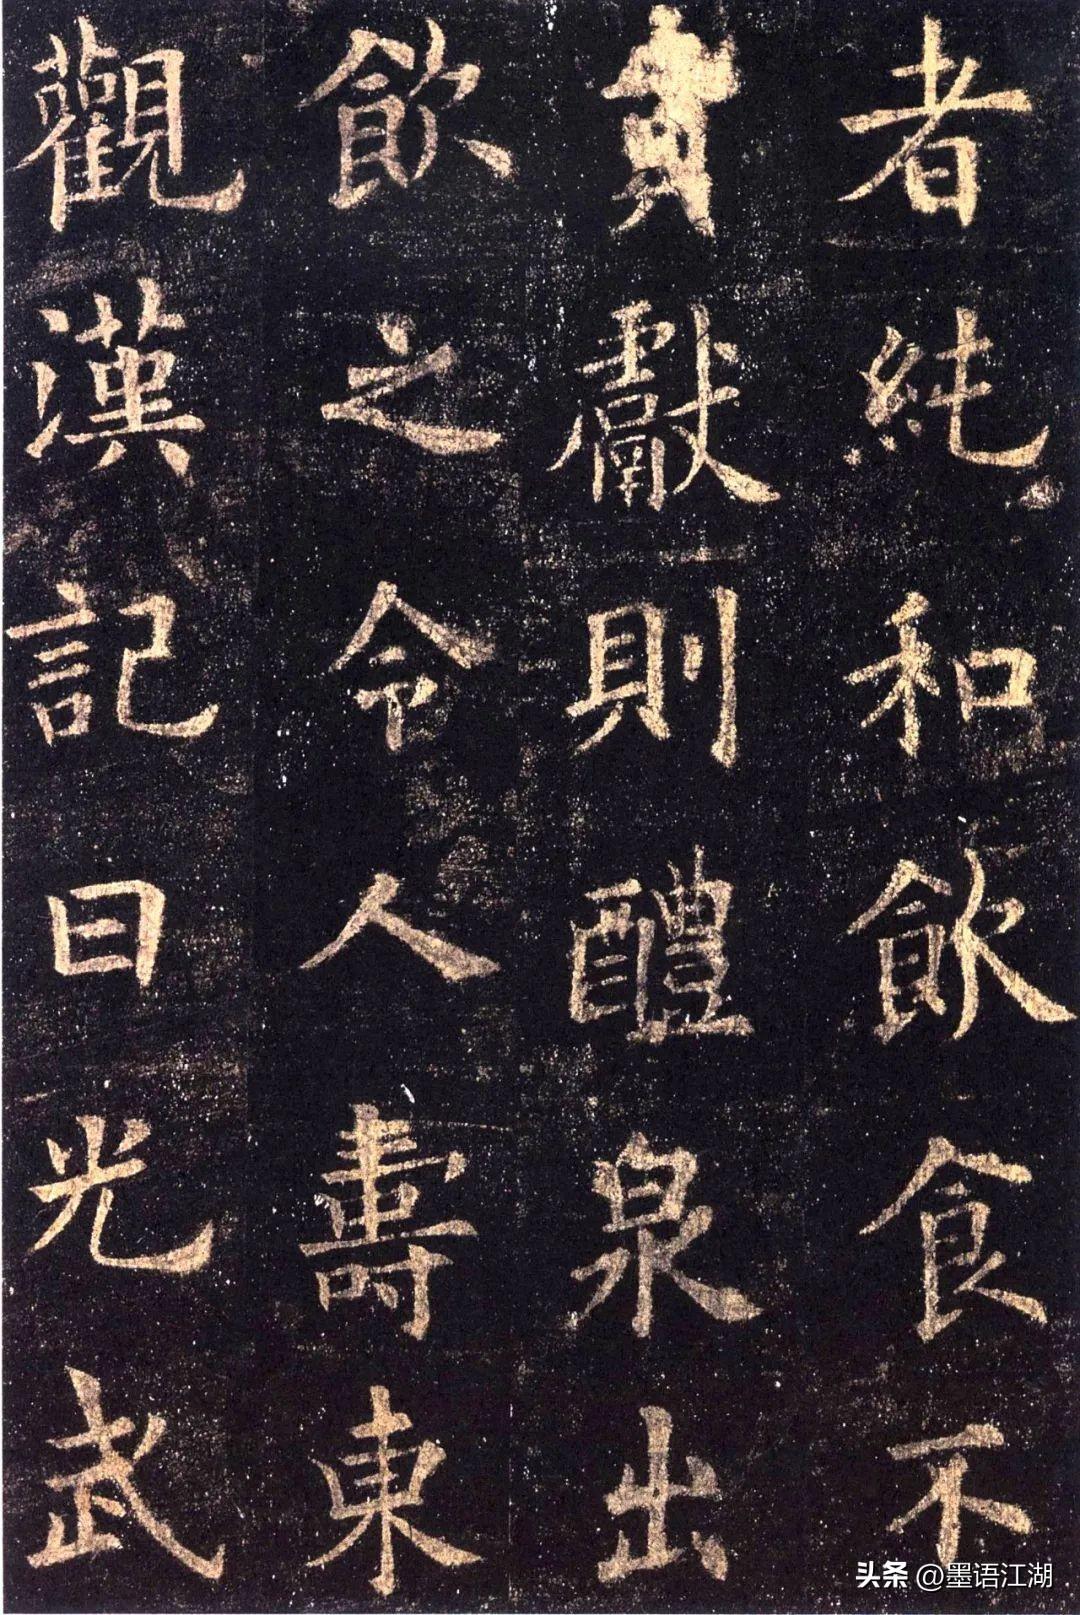 者純和飲食不
獻則醴泉出
飲之令人壽東
觀漢記曰光武
头条 @墨语江湖